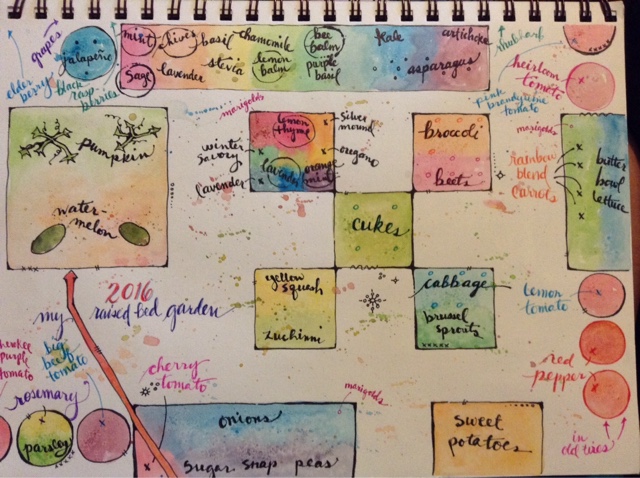 grapes
elder
berry
jalapeño
black
rasp
berries
mint
chives
basil
chamomile
bee
balm
kale
artichoke
sage
lavender
stevia
lemon
balm
purple
basil
asparagus
rhubarb
heirloom
tomato
pink
brandywine
tomato
marigolds
marigolds
pumpkin
water-
melon
winter
savory
lavender
lemon
thyme
silver
mound
oregano
lavender
orange
mint
broccoli
beets
rainbow
blend
carrots
butter
bowl
lettuce
cukes
2016
my raised bed garden
yellow
squash
zuchinni
cabbage
brussel
sprouts
lemon
tomato
red
pepper
in
old tires
purple
tomato
big
beef
tomato
rosemary
parsley
cherry
tomato
marigolds
onions
sugar snap peas
sweet
potatoes